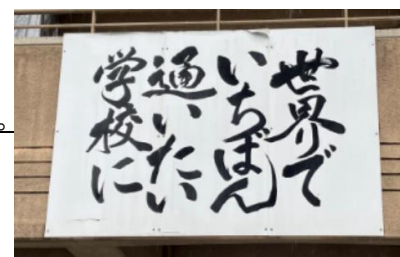 世界で
いちばん
通いたい
学校に